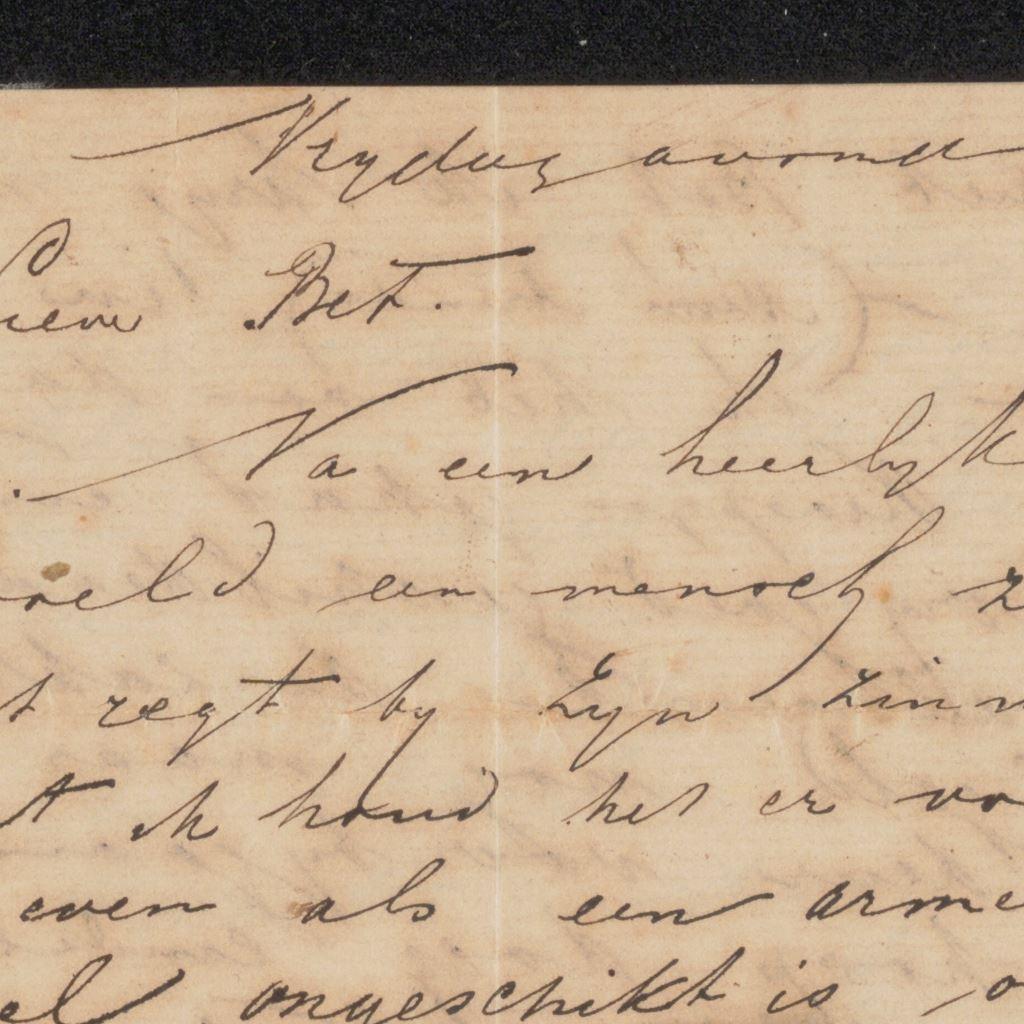 Vrydag avond
Lieve Bet.
Na een heerlyk
voeld een mensch z
t regt by zyn zinn
t ik houd het er vo
even als een arme
el ongeschikt is o